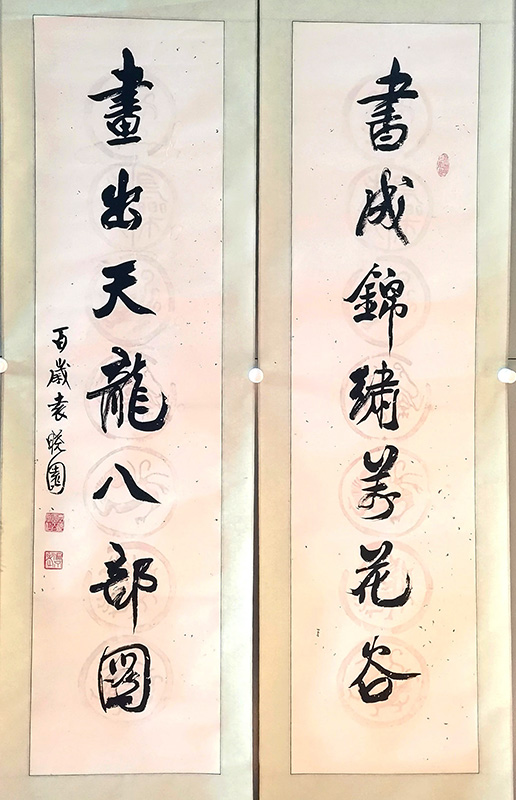 書成錦繡萬花谷
畫出天龍八部圖
百歲袁曉園